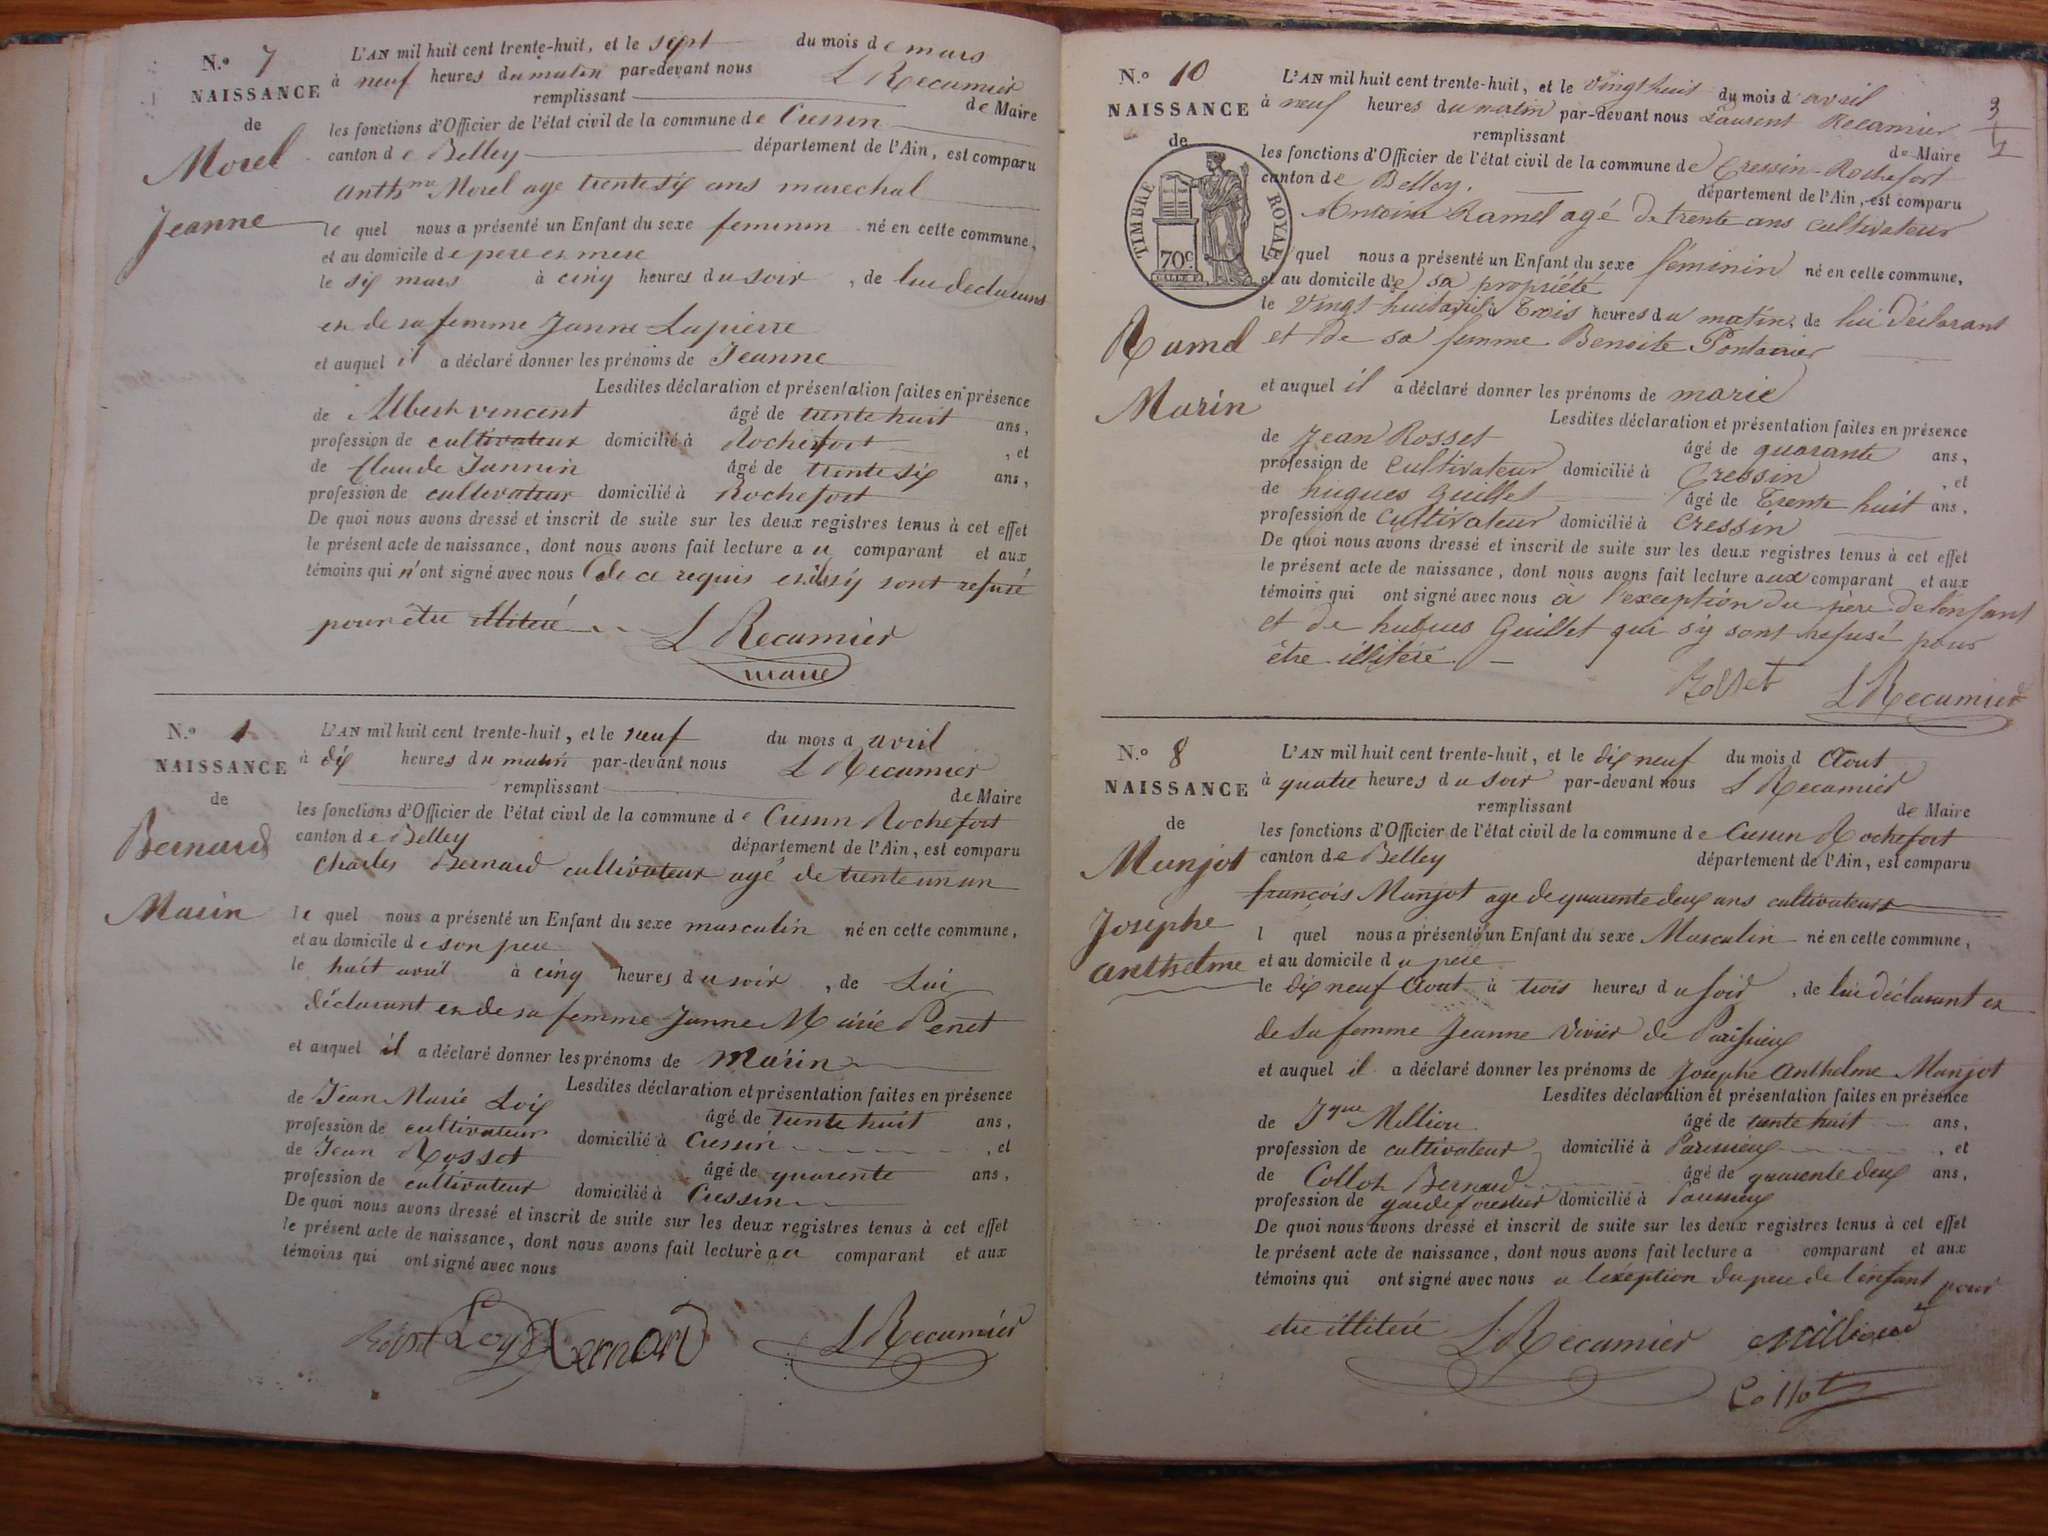 N.º 7
NAISSANCE
de
Morel
Jeanne
L'AN mil huit cent trente-huit, et le sept du mois de mars
à neuf heures du matin par-devant nous L Recamier
remplissant de Maire
les fonctions d'Officier de l'état civil de la commune de Cressin
canton de Belley département de l'Ain, est comparu
Anthme Morel age trente six ans marechal
le quel nous a présenté un Enfant du sexe feminin né en cette commune,
et au domicile de pere et mere
le six mars à cinq heures du soir, de lui declarans
et de sa femme Janne Lapierre
et auquel il a déclaré donner les prénoms de Jeanne
Lesdites déclaration et présentation faites en présence
de Albert vincent âgé de trente huit ans,
profession de cultivateur domicilié à Rochefort, et
de Claude Jannin âgé de trente six ans,
profession de cultivateur domicilié à Rochefort
De quoi nous avons dressé et inscrit de suite sur les deux registres tenus à cet effet
le présent acte de naissance, dont nous avons fait lecture au comparant et aux
témoins qui n'ont signé avec nous de ce requis et ils s'y sont refusé
pour être illiteré
L Recamier
maire
N.º 1
NAISSANCE
de
Bernard
Marin
L'AN mil huit cent trente-huit, et le neuf du mois d avril
à dix heures du matin par-devant nous L Recamier
remplissant de Maire
les fonctions d'Officier de l'état civil de la commune de Cressin Rochefort
canton de Belley département de l'Ain, est comparu
Charles Bernard cultivateur agé de trente un an
le quel nous a présenté un Enfant du sexe masculin né en cette commune,
et au domicile de son pere
le huit avril à cinq heures du soir, de Lui
déclarant et de sa femme Janne Marie Penet
et auquel il a déclaré donner les prénoms de Marin
Lesdites déclaration et présentation faites en présence
de Jean Marie Loix âgé de trente huit ans,
profession de cultivateur domicilié à Cressin, et
de Jean Rosset âgé de quarente ans,
profession de cultivateur domicilié à Cressin
De quoi nous avons dressé et inscrit de suite sur les deux registres tenus à cet effet
le présent acte de naissance, dont nous avons fait lecture au comparant et aux
témoins qui ont signé avec nous
Bernard L Recamier
N.º 10
NAISSANCE
de
TIMBRE ROYAL
70c
Ramel
Marin
L'AN mil huit cent trente-huit, et le vingt huit du mois d avril
à neuf heures du matin par-devant nous Laurent Recamier
remplissant de Maire
les fonctions d'Officier de l'état civil de la commune de Cressin-Rochefort
canton de Belley. département de l'Ain, est comparu
Antoine Ramel agé de trente ans cultivateur
le quel nous a présenté un Enfant du sexe féminin né en cette commune,
et au domicile de sa propriété
le vingt huit avril à Trois heures du matin, de lui déclarant
et de sa femme Benoite Pontannier
et auquel il a déclaré donner les prénoms de marie
Lesdites déclaration et présentation faites en présence
de Jean Rosset âgé de quarante ans,
profession de cultivateur domicilié à Cressin, et
de hugues Guillet âgé de Trente huit ans,
profession de cultivateur domicilié à Cressin
De quoi nous avons dressé et inscrit de suite sur les deux registres tenus à cet effet
le présent acte de naissance, dont nous avons fait lecture aux comparant et aux
témoins qui ont signé avec nous à l'exception du père de l'enfant
et de hugues Guillet qui s'y sont refusé pour
être illiteré
Rosset L Recamier
N.º 8
NAISSANCE
de
Munjot
Josephe
anthelme
L'AN mil huit cent trente-huit, et le dix neuf du mois d Aout
à quatre heures du soir par-devant nous L Recamier
remplissant de Maire
les fonctions d'Officier de l'état civil de la commune de Cressin Rochefort
canton de Belley département de l'Ain, est comparu
françois Munjot age de quarente deux ans cultivateur
l quel nous a présenté un Enfant du sexe Masculin né en cette commune,
et au domicile du pere
le dix neuf Aout à trois heures du soir, de lui déclarant et
de sa femme Jeanne Vivier de Parissieux
et auquel il a déclaré donner les prénoms de Josephe Anthelme Munjot
Lesdites déclaration et présentation faites en présence
de Jque Million âgé de trente huit ans,
profession de cultivateur domicilié à Parissieux, et
de Collot Bernard âgé de quarente deux ans,
profession de garde forestier domicilié à Parissieux
De quoi nous avons dressé et inscrit de suite sur les deux registres tenus à cet effet
le présent acte de naissance, dont nous avons fait lecture a comparant et aux
témoins qui ont signé avec nous a l'exéption du pere de l'enfant pour
etre illiteré L Recamier Milliond
Collot